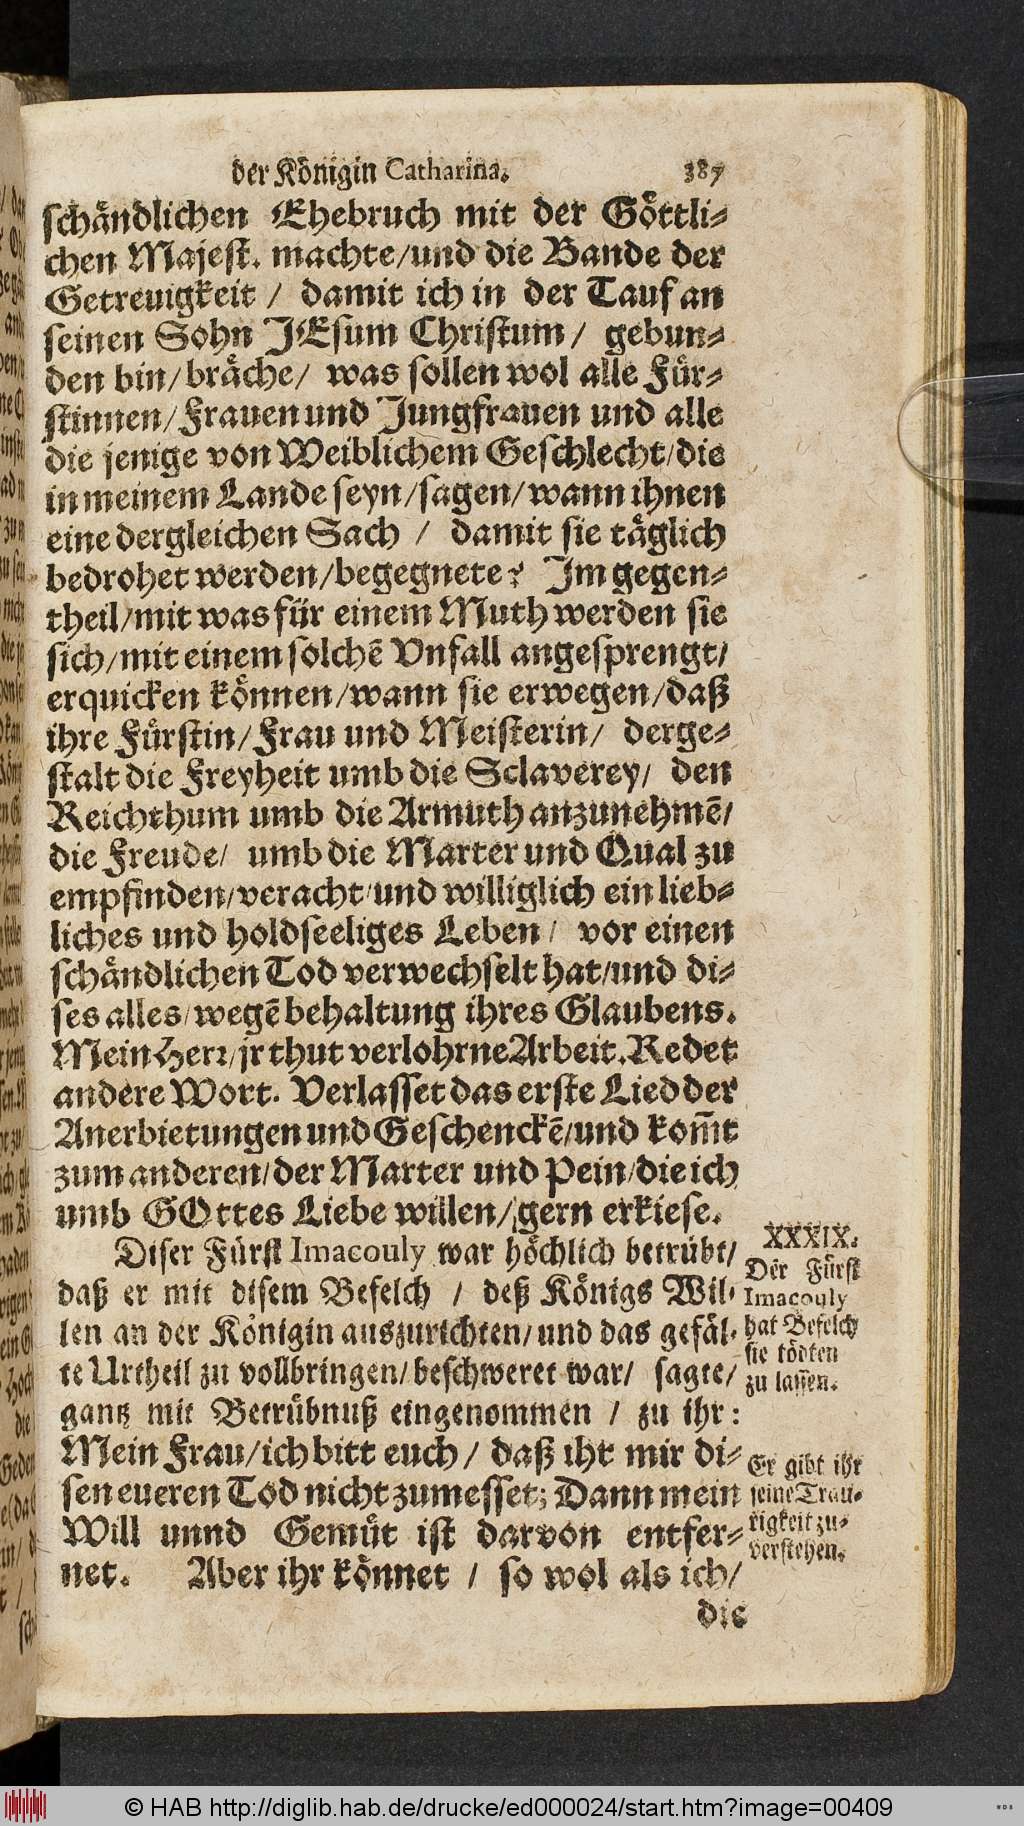 der Königin Catharina. 387
schändlichen Ehebruch mit der Göttli-
chen Majest. machte/und die Bande der
Getreuigkeit / damit ich in der Tauf an
seinen Sohn JEsum Christum / gebun-
den bin/bräche/ was sollen wol alle Für-
stinnen/Frauen und Jungfrauen und alle
die jenige von Weiblichem Geschlecht/die
in meinem Lande seyn/sagen/wann ihnen
eine dergleichen Sach / damit sie täglich
bedrohet werden/begegnete? Im gegen-
theil/mit was für einem Muth werden sie
sich/mit einem solchē Vnfall angesprengt/
erquicken können/wann sie erwegen/daß
ihre Fürstin/Frau und Meisterin/ derge-
stalt die Freyheit umb die Sclaverey/ den
Reichthum umb die Armuth anzunehmē/
die Freude/ umb die Marter und Qual zu
empfinden/veracht/und williglich ein lieb-
liches und holdseeliges Leben/ vor einen
schändlichen Tod verwechselt hat/und di-
ses alles/wegē behaltung ihres Glaubens.
Mein Herr/jr thut verlohrne Arbeit. Redet
andere Wort. Verlasset das erste Lied der
Anerbietungen und Geschenckē/und kom̄t
zum anderen/der Marter und Pein/die ich
umb GOttes Liebe willen/gern erkiese.
Diser Fürst Imacouly war höchlich betrübt/
daß er mit disem Befelch / deß Königs Wil-
len an der Königin auszurichten/und das gefäl-
te Urtheil zu vollbringen/beschweret war/ sagte/
gantz mit Betrübnuß eingenommen / zu ihr:
Mein Frau/ich bitt euch/ daß iht mir di-
sen eueren Tod nicht zumesset; Dann mein
Will unnd Gemüt ist darvon entfer-
net. Aber ihr könnet / so wol als ich/
die
XXXIX.
Der Fürst
Imacouly
hat Befelch
sie tödten
zu lassen.
Er gibt ihr
seine Trau-
rigkeit zu-
verstehen.
© HAB http://diglib.hab.de/drucke/ed000024/start.htm?image=00409